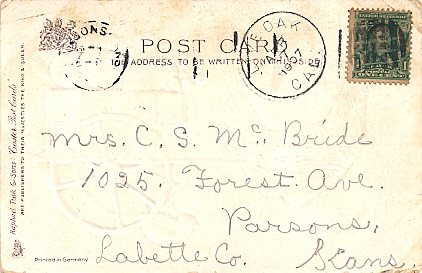 PARSONS.
POST CARD
THE ADDRESS TO BE WRITTEN ON THIS SIDE
LIVE OAK
1907
CAL.
UNITED STATES
ONE CENT
Raphael Tuck & Sons' "Easter Post Cards"
ART PUBLISHERS TO THEIR MAJESTIES THE KING & QUEEN.
Mrs. C. S. Mc. Bride
1025. Forest Ave.
Parsons,
Labette Co. Kans.
Printed in Germany